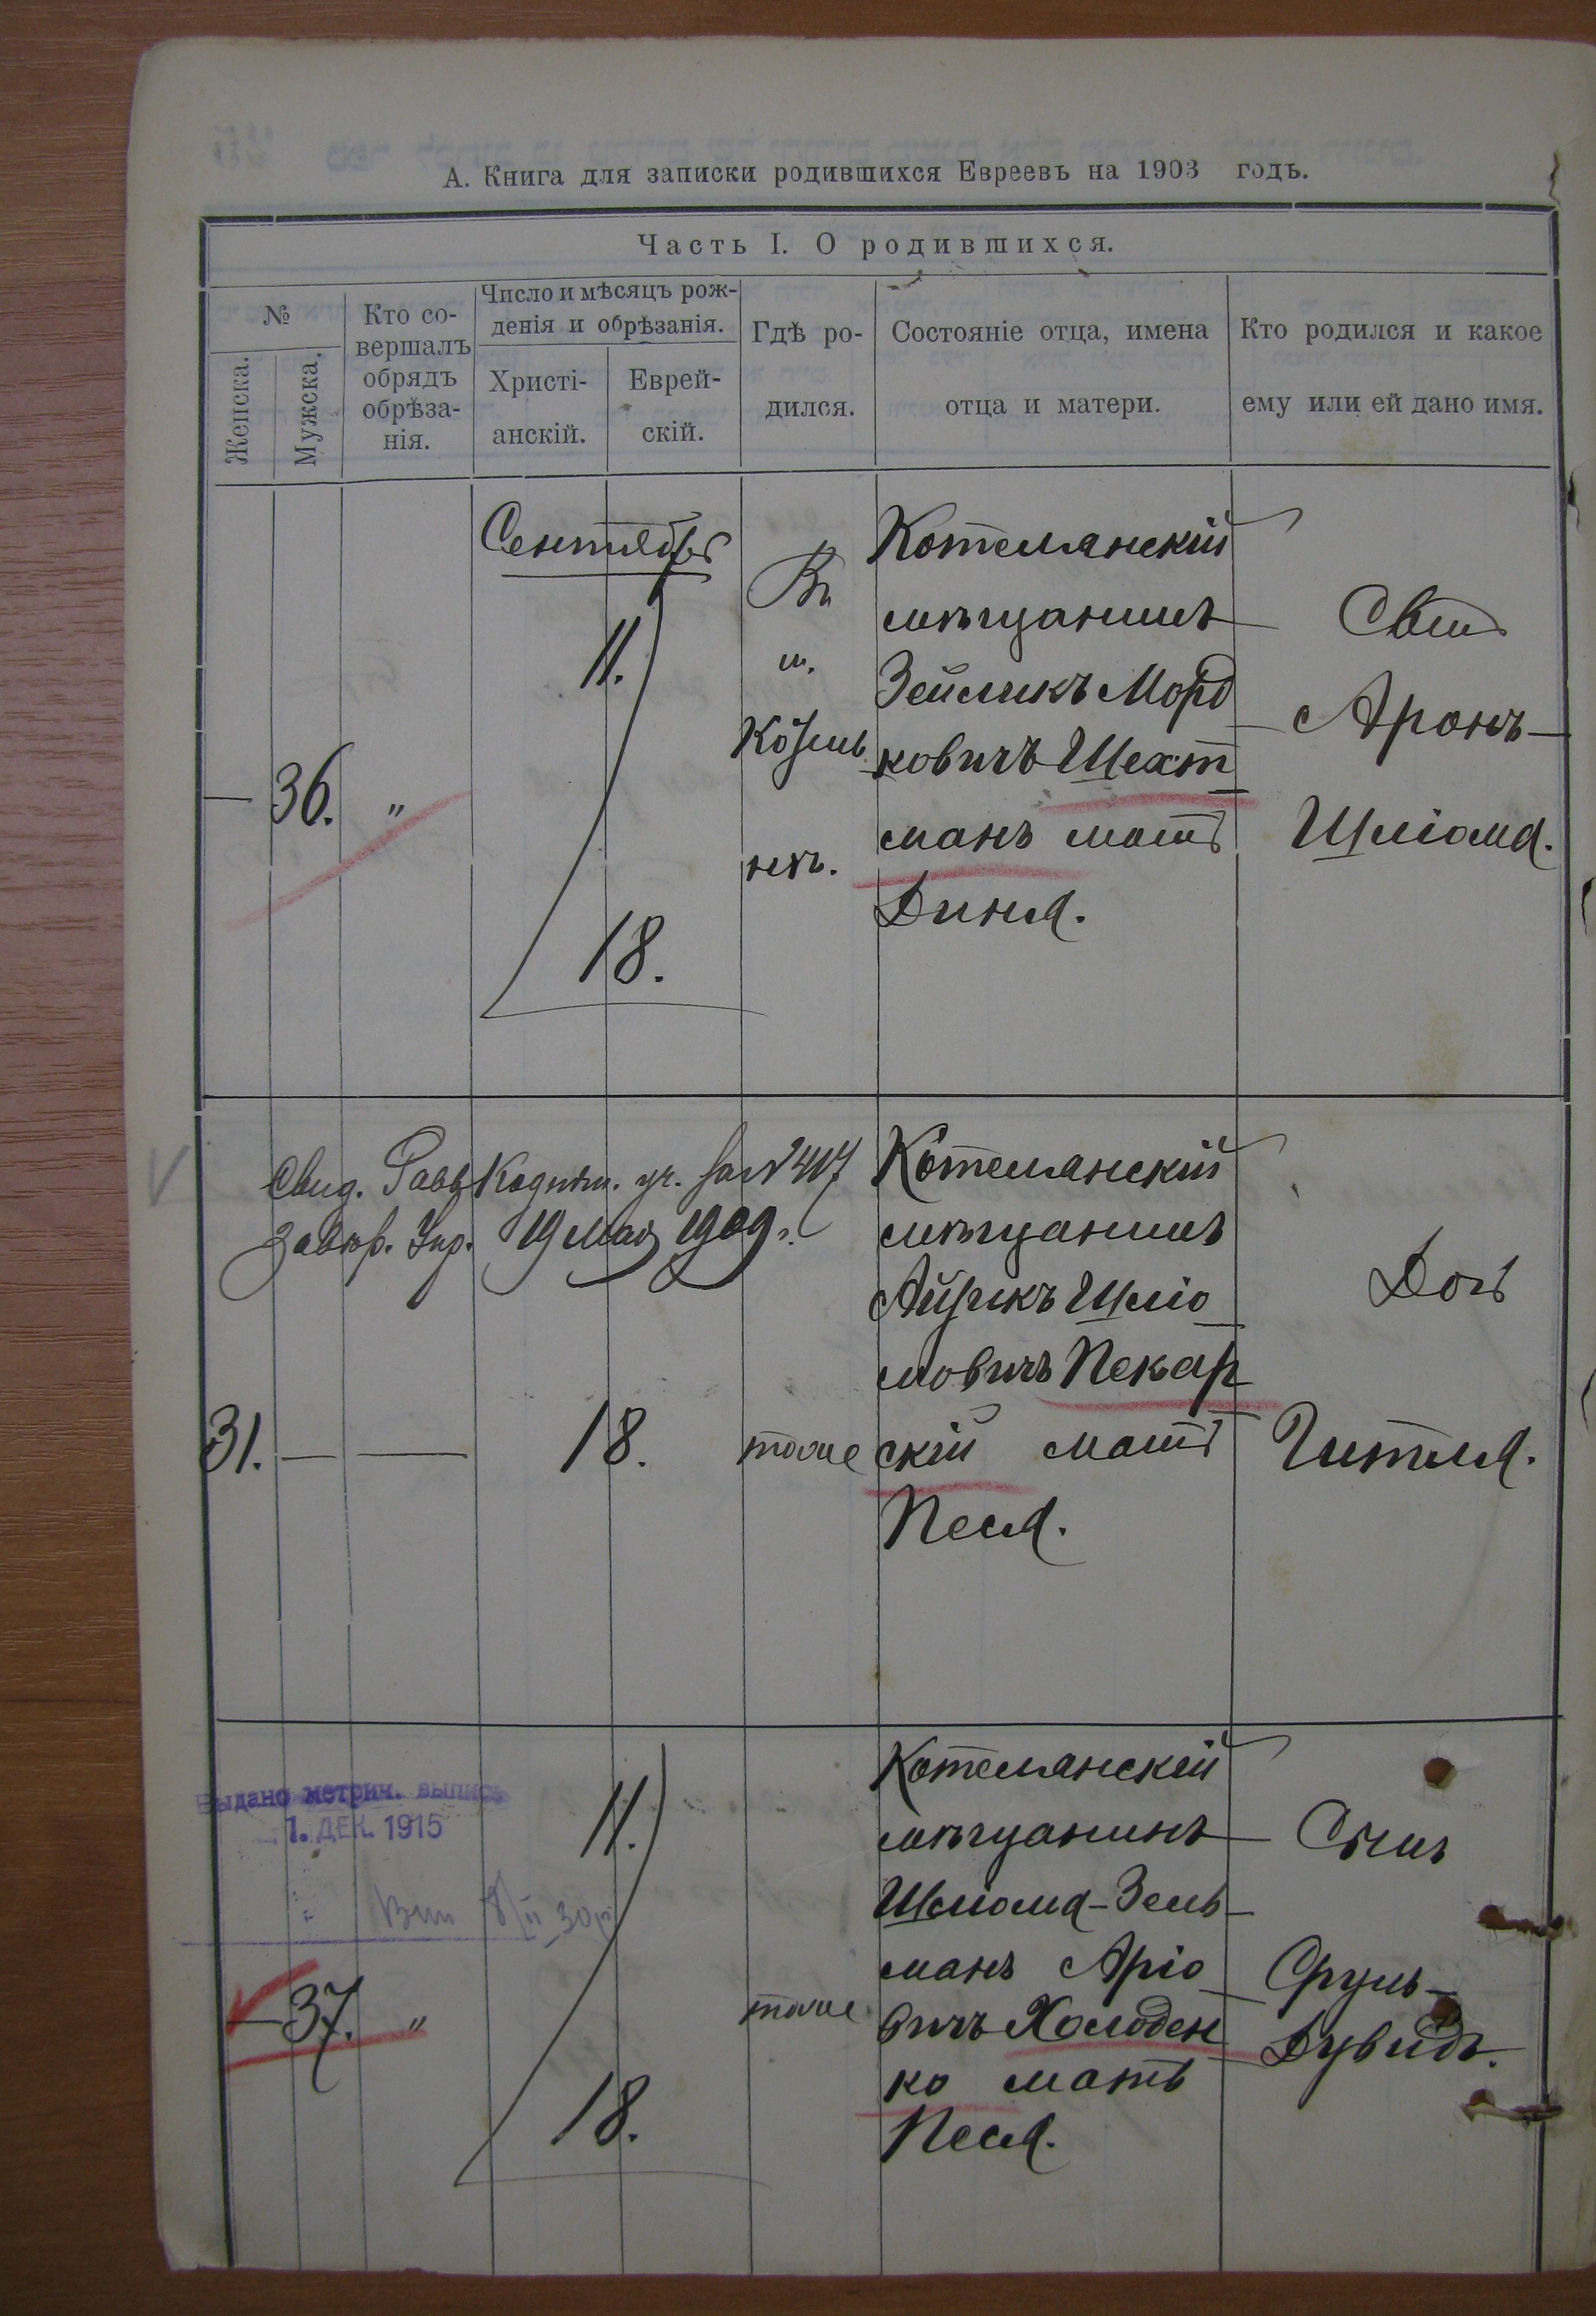 А. Книга для записки родившихся Евреевъ на 1903 годъ.
Часть I. О родившихся.
№
Женска.
Мужска.
Кто со-
вершалъ
обрядъ
обрѣза-
нія.
Число и мѣсяцъ рож-
денія и обрѣзанія.
Христі-
анскій.
Еврей-
скій.
Гдѣ ро-
дился.
Состояніе отца, имена
отца и матери.
Кто родился и какое
ему или ей дано имя.
— 36. "
Сентябрь
11.
18.
Въ
м.
Козель
нкѣ.
Котелянскій
мѣщанинъ
Зейликъ Морд
ковичъ Шехт
манъ мать
Диня.
Сынъ
Аронъ-
Шліома.
Свид. Рабб. за № 417
19 Мая 1909 г.
31. — —
18.
тоже
Котелянскій
мѣщанинъ
Айзикъ Шліо
мовичъ Пекар
скій мать
Песя.
Дочь
Гителя.
Выдано метрич. выпись
1. ДЕК. 1915
— 37. "
11.
18.
тоже
Котелянскій
мѣщанинъ
Шліома-Зель-
манъ Аріо
вичъ Холоден
ко мать
Песя.
Сынъ
Сруль-
Дувидъ.